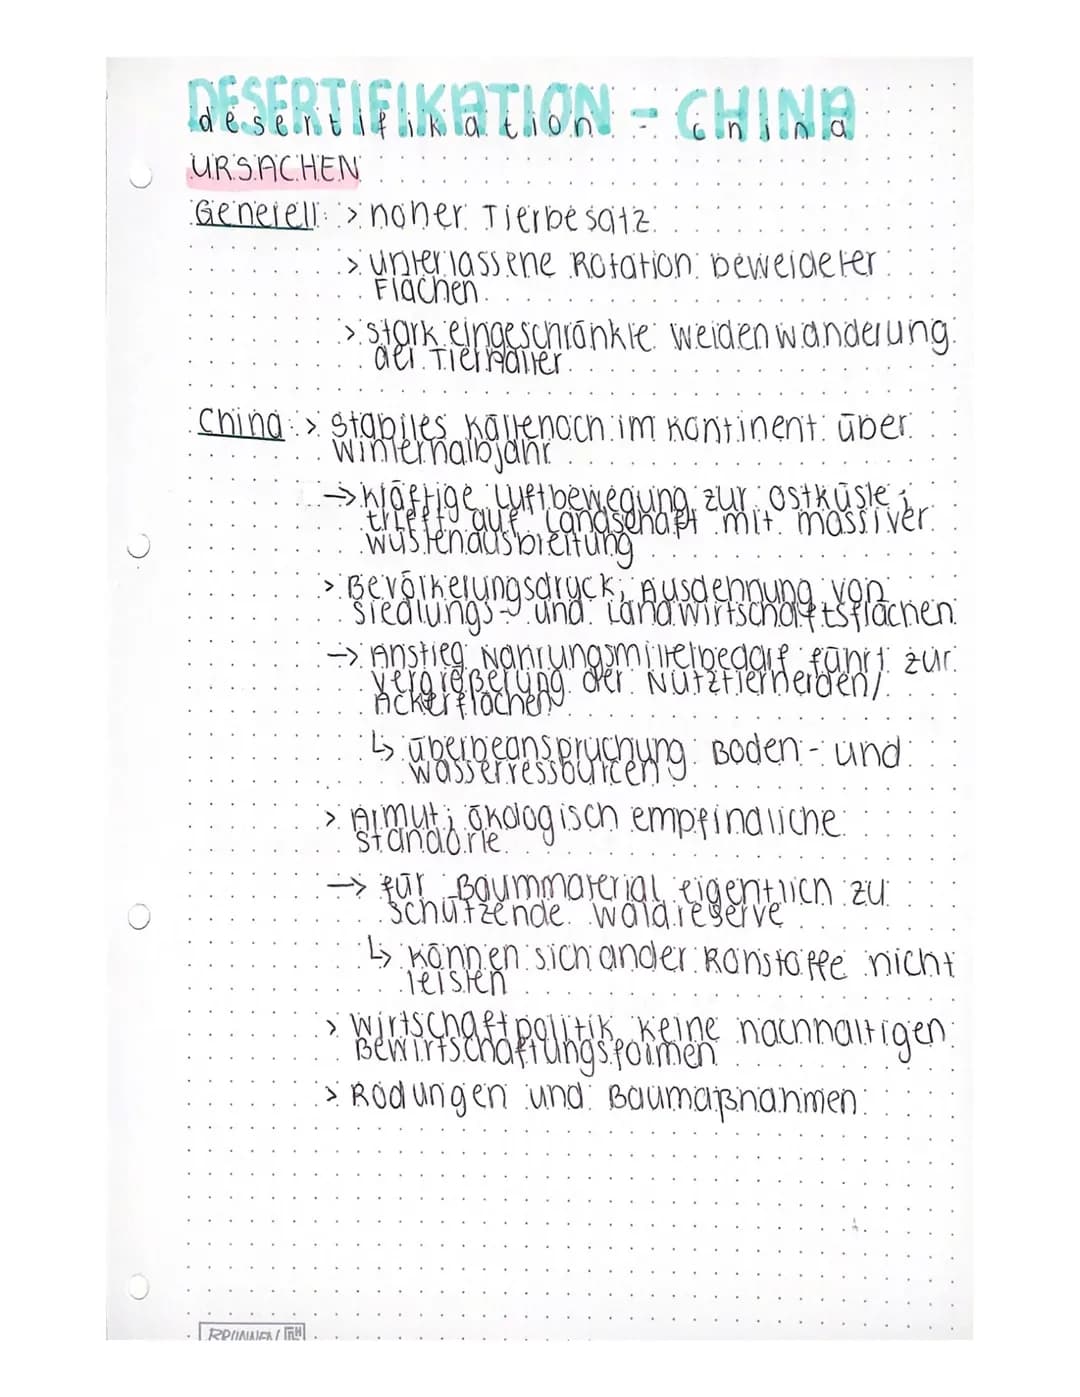 DESERTIFIKATION - CHINA
desertifikation china
URSACHEN
Generell: > hoher Tierbesatz
> unterlassene Rotation beweideter
Flächen
> stark eingeschränkte Weidenwanderung
der Tierhalter
China: > stabiles Kältehoch im Kontinent über
Winterhalbjahr
→ kräftige Luftbewegung zur Ostküste;
trifft auf Landschaft mit massiver
Wüstenausbreitung
> Bevölkerungsdruck; Ausdehnung von
Siedlungs- und Landwirtschaftsflächen
→ Anstieg Nahrungsmittelbedarf führt zur
Vergrößerung der Nutztierherden/
Ackerflächen
↳ Überbeanspruchung Boden- und
Wasserressourcen
> Armut; ökologisch empfindliche
Standorte
→ für Baummaterial eigentlich zu
schützende Waldreserve
↳ können sich ander Rohstoffe nicht
leisten
> Wirtschaftpolitik, keine nachhaltigen
Bewirtschaftungsformen
> Rodungen und Baumaßnahmen
BRUNNEN